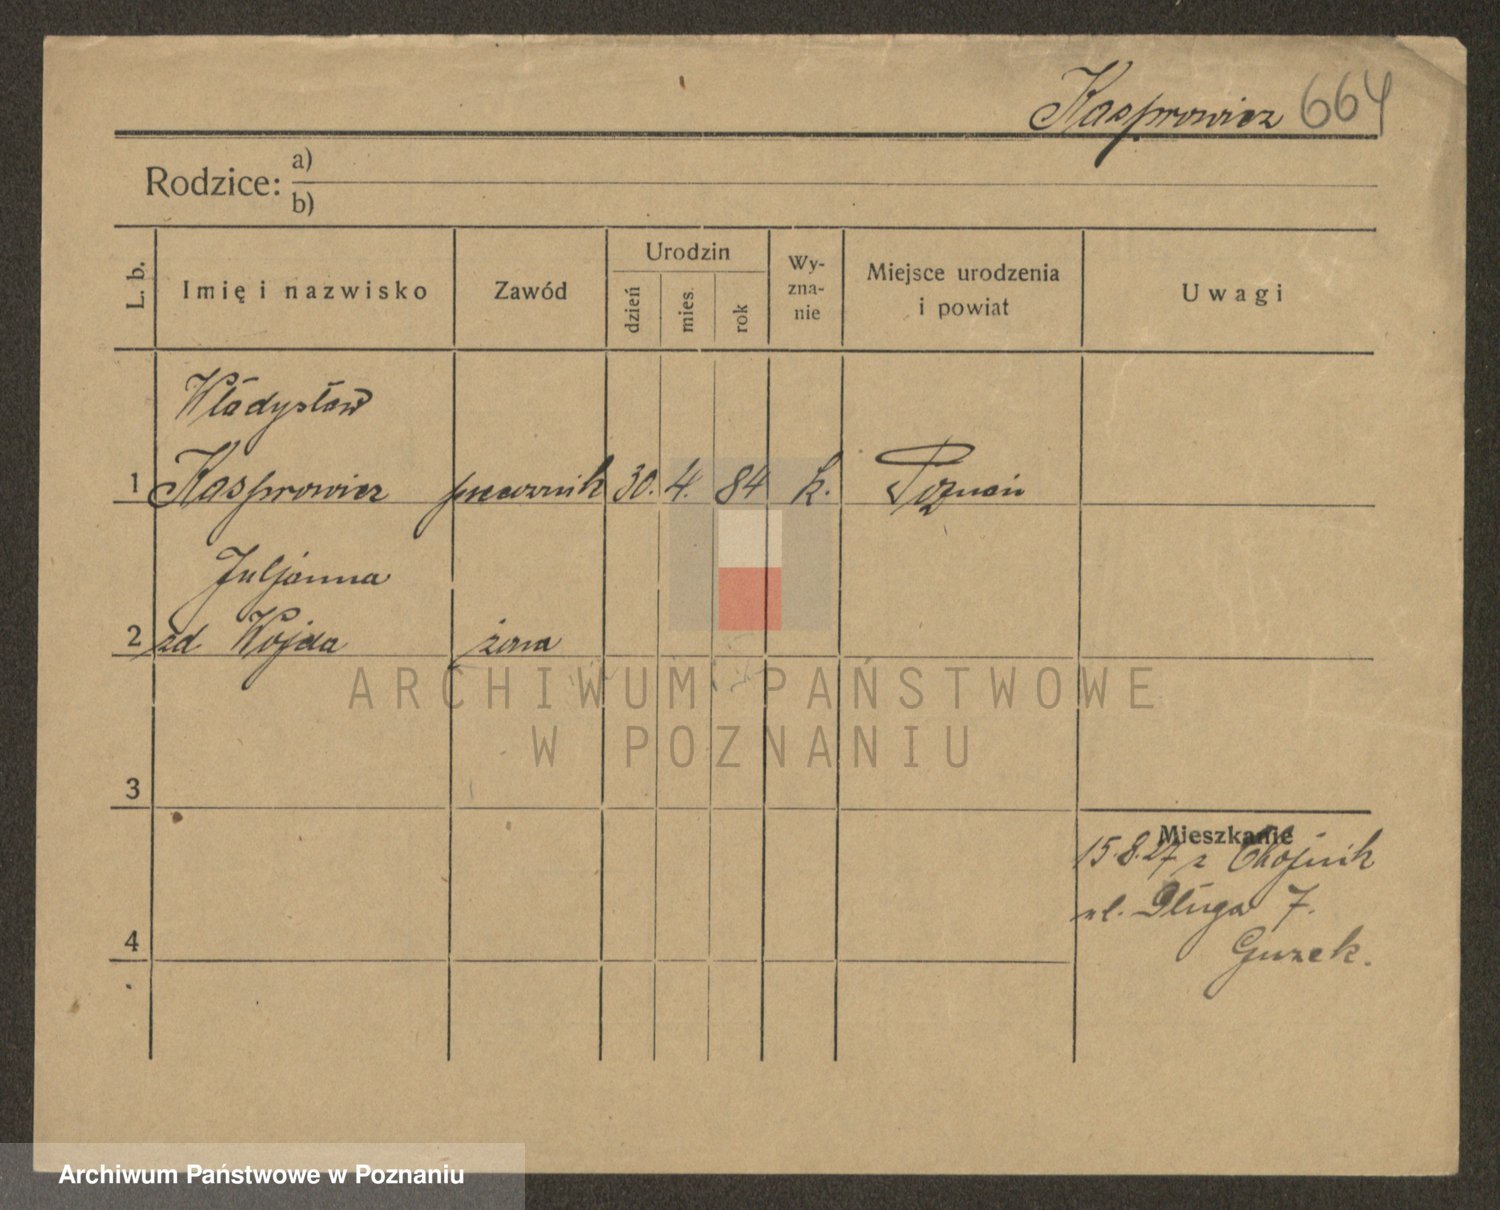 Kasprowicz 664
Rodzice: a)
b)
L. b.
Imię i nazwisko
Zawód
Urodzin
dzień
mies.
rok
Wy-
zna-
nie
Miejsce urodzenia
i powiat
Uwagi
Władysław
1 Kasprowicz 30. 4. 84 k. Poznań
Juljanna
2 zd Wojda żona
ARCHIWUM PAŃSTWOWE
W POZNANIU
3
Mieszkanie
15.8.27 z Chojnik
ul. Długa 7.
4
Guzek.
Archiwum Państwowe w Poznaniu